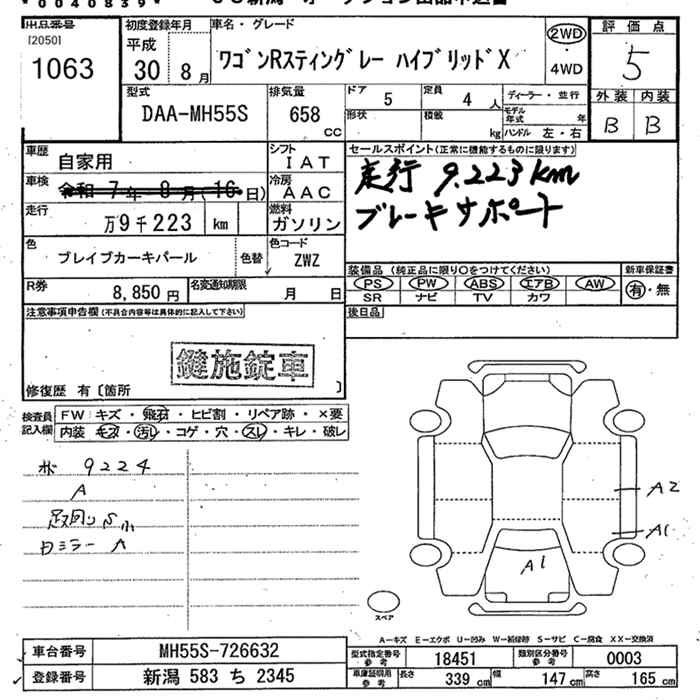 *0040839*
出品番号 初度登録年月 車名・グレード 2WD 評価点
[2050]
1063 平成 30年 8月 ワゴンRスティングレー ハイブリッドX 4WD 5
型式 排気量 ドア 5 定員 4人 ディーラー・並行 外装 内装
DAA-MH55S 658 cc 形状 積載 kg モデル年式 年 B B
ハンドル 左・右
車歴 自家用 シフト IAT セールスポイント(正常に機能するものに限ります)
車検 令和 7年 8月(16日) 冷房 AAC 走行 9.223km
走行 万9千223 km 燃料 ガソリン ブレーキサポート
色 ブレイブカーキパール 色替 色コード ZWZ
装備品(純正品に限り○をつけてください) 新車保証書
R券 8,850円 名変通知期限 月 日 PS PW ABS エアB AW 有・無
SR ナビ TV カワ
注意事項申告欄(不具合内容等は具体的に記入して下さい) 後日品
鍵施錠車
修復歴 有〔箇所 〕
検査員記入欄 FW キズ・飛石・ヒビ割・リペア跡・×要
内装 キズ・汚レ・コゲ・穴・スレ・キレ・破レ
ホ 9224
A
足回りS小
ロミラーA
A2
A1
A1
スペア
A―キズ E―エクボ U―凹み W―補修跡 S―サビ C―腐食 XX―交換済
車台番号 MH55S-726632 型式指定番号 参考 18451 類別区分番号 参考 0003
登録番号 新潟 583 ち 2345 車庫証明用 参考 長さ 339cm 幅 147cm 高さ 165cm